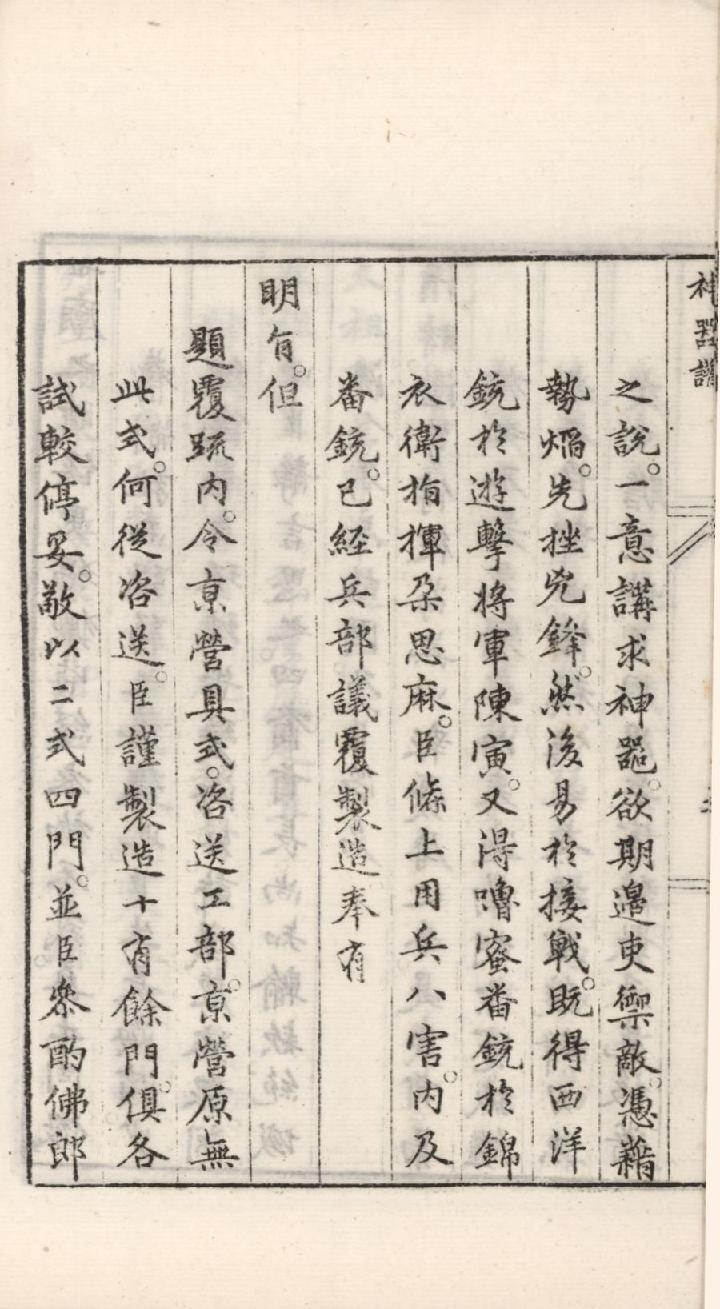 神器譜
之說。一意講求神器。欲期邉吏禦敵。憑藉
勢熖。先挫兇鋒。然後易於接戰。既得西洋
銃於遊擊將軍陳寅。又得嚕蜜番銃於錦
衣衛指揮朶思麻。臣條上用兵八害。內及
番銃。已經兵部議覆製造奉有
明旨。但
題覆疏內。令亰營具式。咨送工部。亰營原無
此式。何從咨送。臣謹製造十有餘門。俱各
試較停妥。敢以二式四門。並臣叅酌佛郎